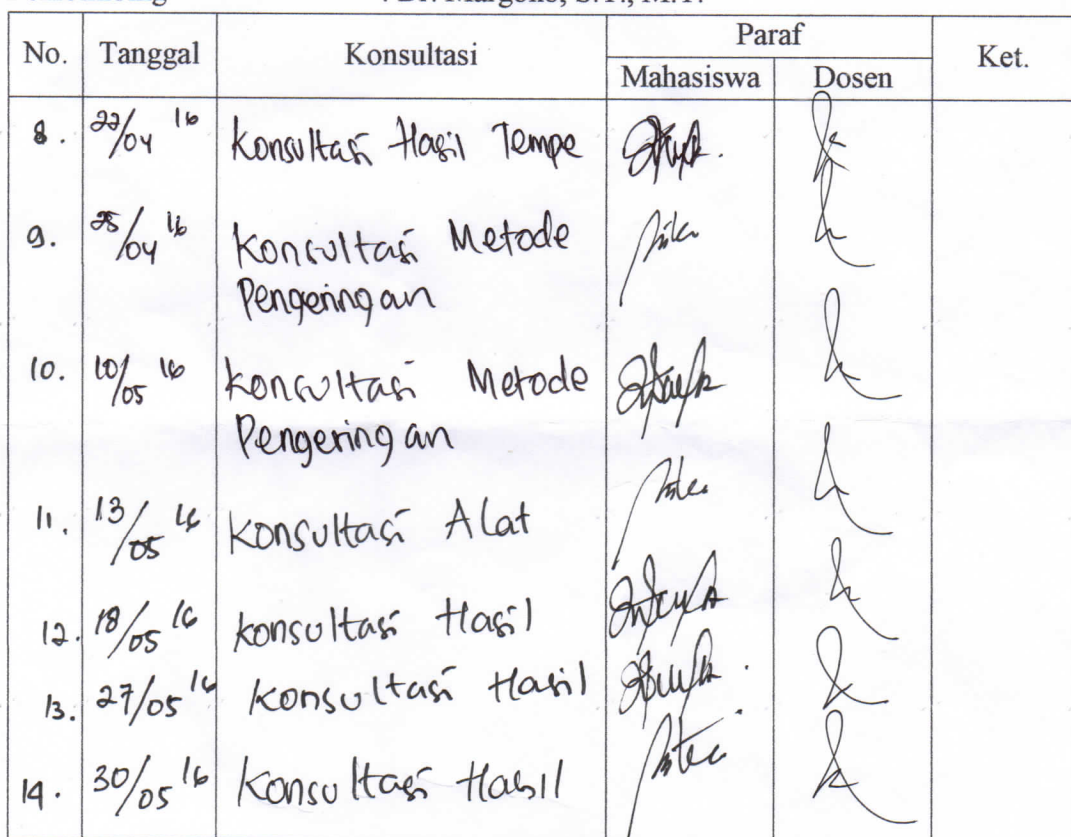 : Dr. Margono, S.T., M.T.
No. Tanggal Konsultasi Paraf Ket.
Mahasiswa Dosen
8. 22/04 16 Konsultasi Hasil Tempe
9. 25/04 16 Konsultasi Metode
Pengeringan
10. 10/05 16 Konsultasi Metode
Pengeringan
11. 13/05 16 Konsultasi Alat
12. 18/05 16 Konsultasi Hasil
13. 27/05 16 Konsultasi Hasil
14. 30/05 16 Konsultasi Hasil